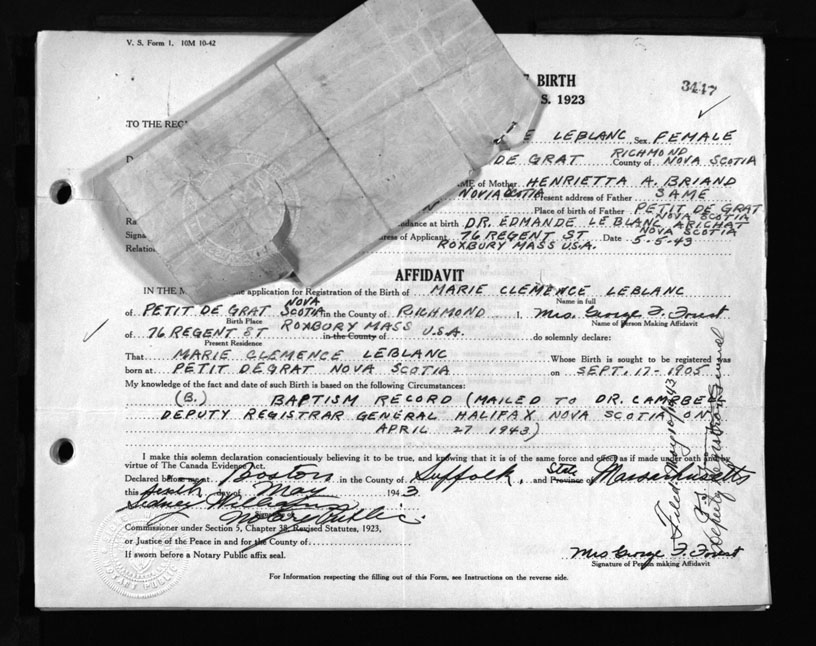 V. S. Form 1. 10M 10-42
BIRTH
3447
S. 1923
TO THE REG
E LEBLANC Sex FEMALE
DE GRAT County of RICHMOND NOVA SCOTIA
of Mother HENRIETTA A. BRIAND
NOVIA SCOTIA Present address of Father SAME
Place of birth of Father PETIT DE GRAT NOVA SCOTIA
at birth DR. EDMANDE LEBLANC ARICHAT NOVA SCOTIA
Signa of Applicant 76 REGENT ST Date 5-5-43
Relation ROXBURY MASS U.S.A.
AFFIDAVIT
IN THE M application for Registration of the Birth of MARIE CLEMENCE LEBLANC
Name in full
of PETIT DE GRAT NOVA SCOTIA in the County of RICHMOND I, Mrs. George F. Forest
Birth Place Name of Person Making Affidavit
of 76 REGENT ST ROXBURY MASS in the County of U.S.A. do solemnly declare:
Present Residence
That MARIE CLEMENCE LEBLANC Whose Birth is sought to be registered was
born at PETIT DEGRAT NOVA SCOTIA on SEPT. 17-1905
My knowledge of the fact and date of such Birth is based on the following Circumstances:
(B.) BAPTISM RECORD (MAILED TO DR. CAMPBELL
DEPUTY REGISTRAR GENERAL HALIFAX NOVA SCOTIA ON
APRIL 27 1943)
I make this solemn declaration conscientiously believing it to be true, and knowing that it is of the same force and effect as if made under oath and by
virtue of The Canada Evidence Act.
Declared before me at Boston in the County of Suffolk, and Province State of Massachusetts
this day of May 1943.
Sidney
Notary Public.
Commissioner under Section 5, Chapter 38, Revised Statutes, 1923,
or Justice of the Peace in and for the County of
If sworn before a Notary Public affix seal.
Mrs George F. Forest
Signature of Person making Affidavit
For Information respecting the filling out of this Form, see Instructions on the reverse side.
Filed May
Deputy Registrar General
NOTARY PUBLIC